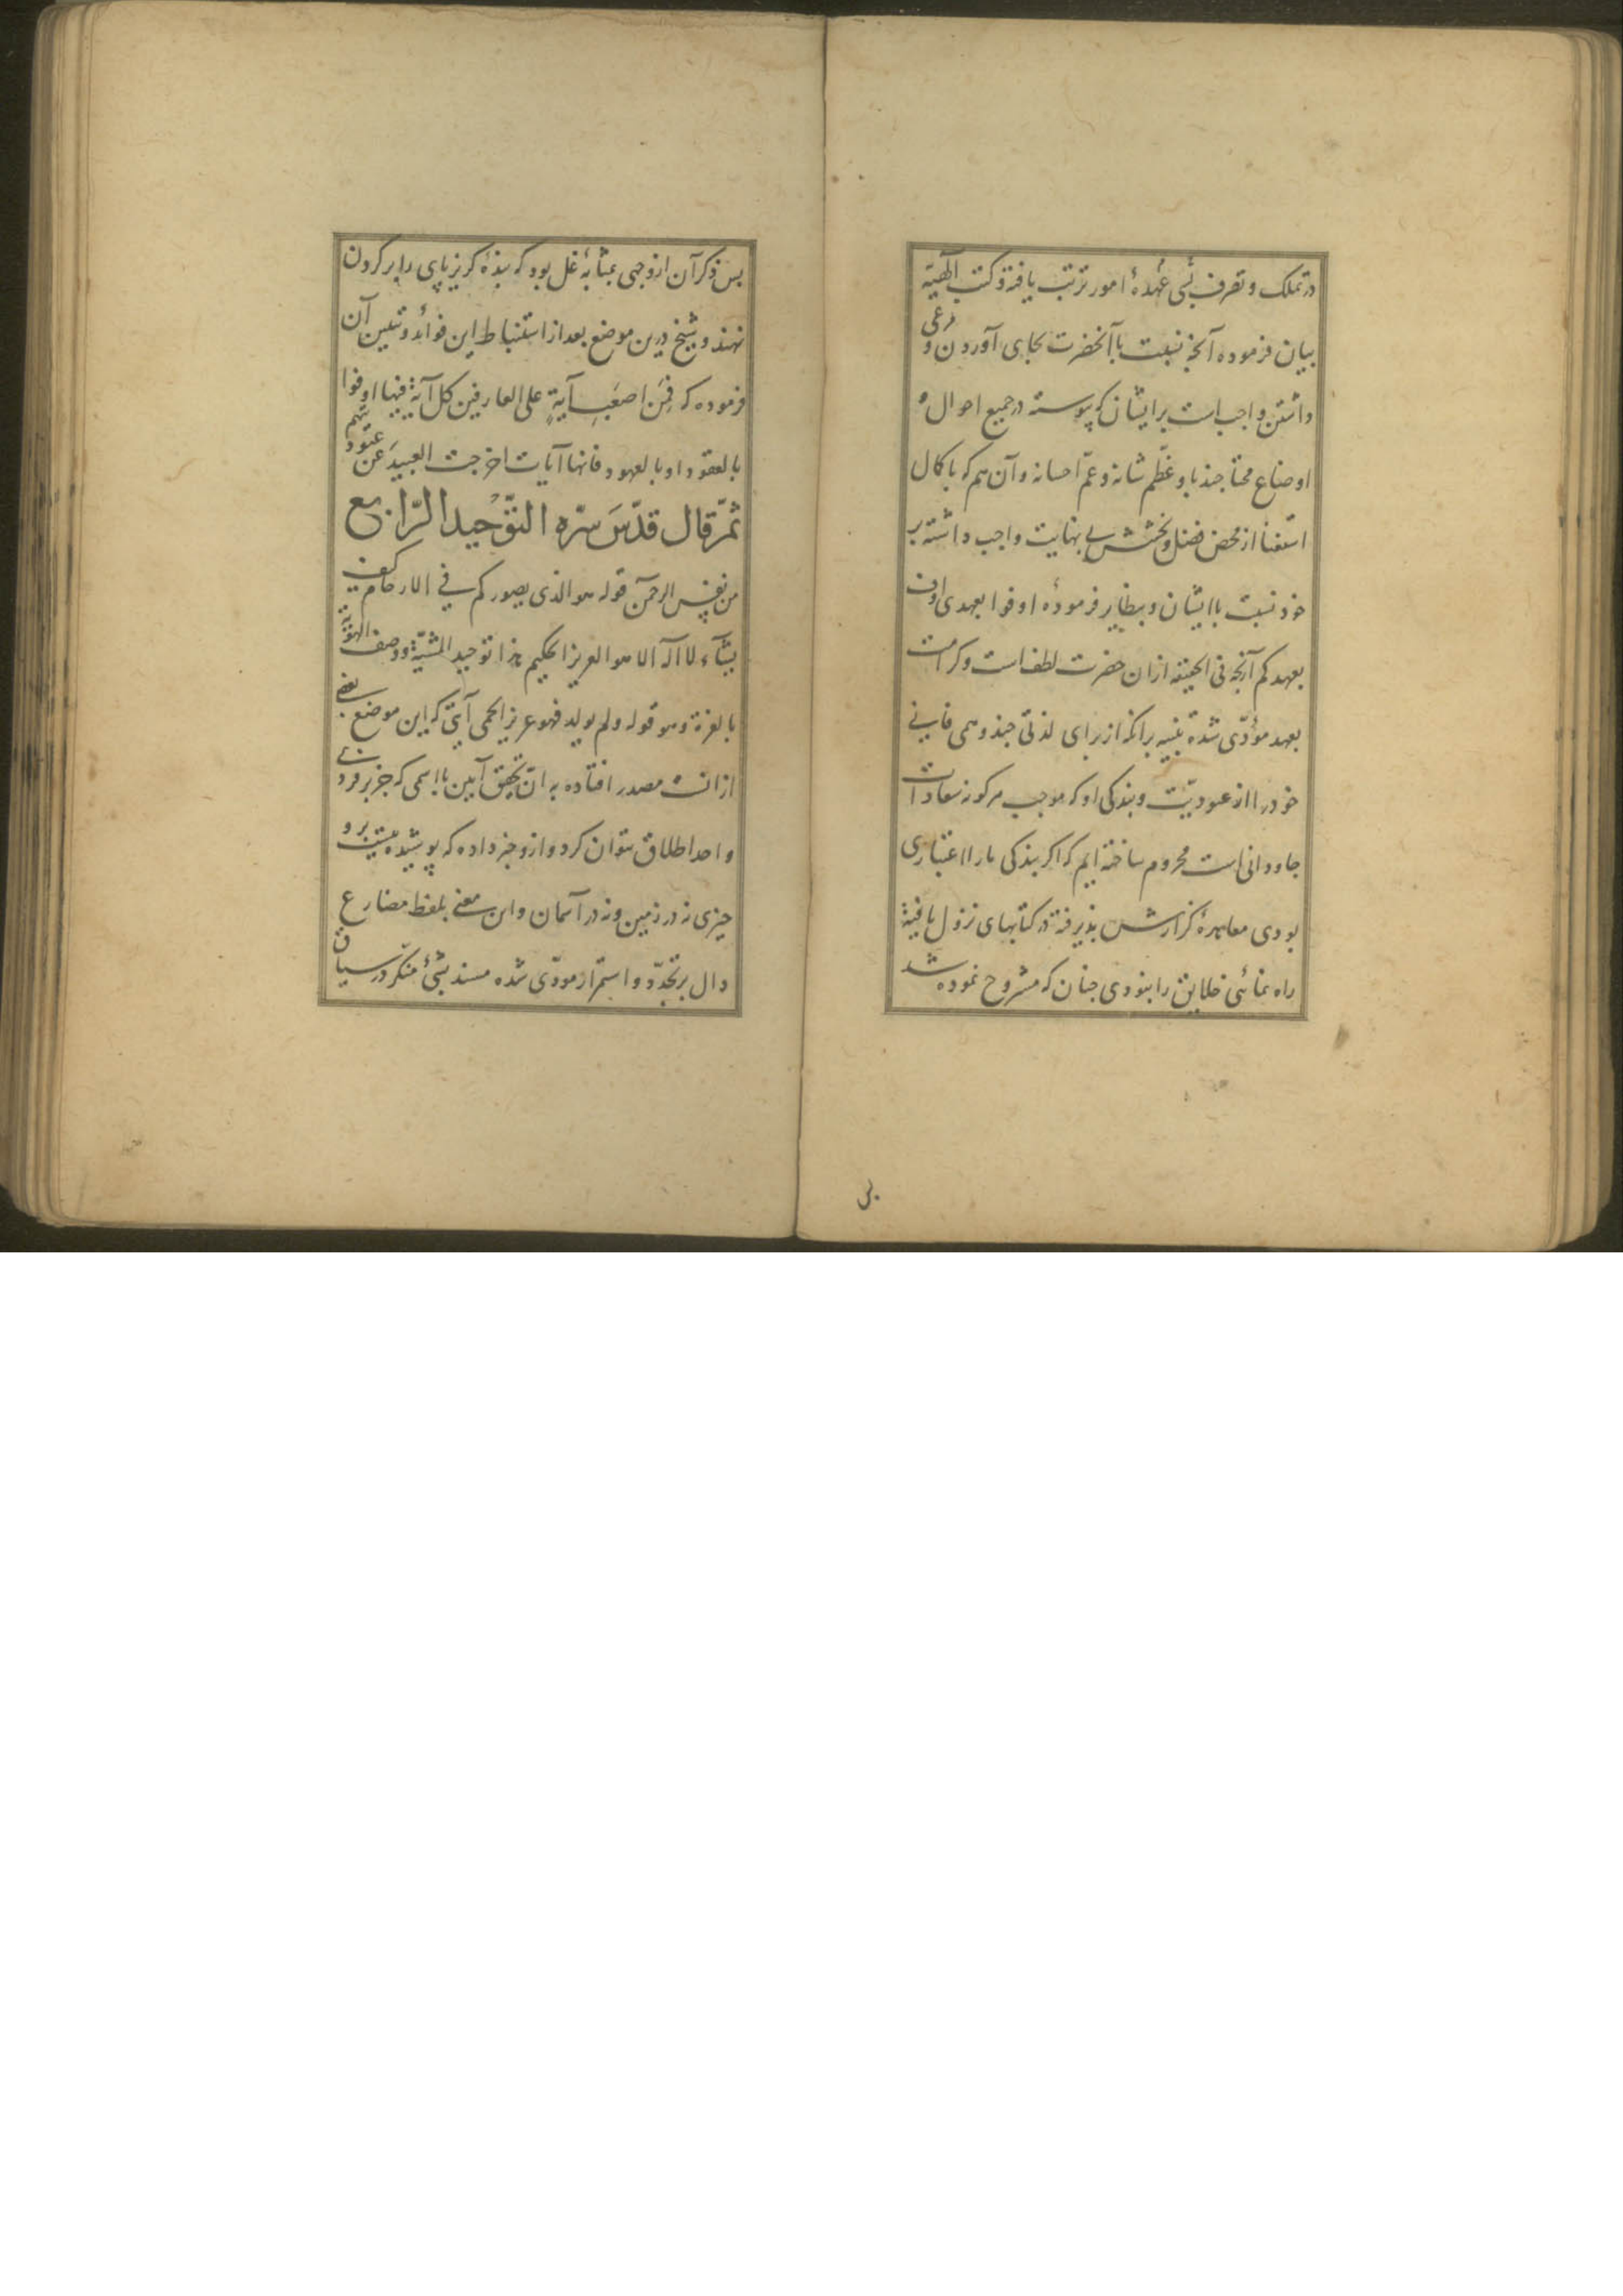 در تملک و تصرف بسی عهدهٔ امور ترتیب یافته و کتب الهیّه
بیان فرموده آنچه نسبت باآنحضرت بجای آوردن و مرعی
داشتن واجب است بر ایشان که پیوسته در جمیع احوال و
اوضاع محتاجند باو عظّم شانه و عمّ احسانه و آن هم که با کمال
استغنا از محض فضل و بخشش بی نهایت واجب داشته بر
خود نسبت باایشان و بنظایر فرمودهٔ اوفوا بعهدی اوف
بعهدکم آنچه فی الحقیقه ازان حضرت لطف است و کرامت
بعهد مؤدّی شده تنبیه برانکه از برای لذتی چند وهمی فانی
خود را از عبودیّت و بندکی او که موجب هرکونه سعادات
جاودانی است محروم ساخته ایم که اکر بندکی ما را اعتباری
بودی معاهدهٔ کزارش پذیرفته در کتابهای نزول یافتهٔ
راه نمائنی خلایق را بنودی جنان که مشروح نموده شد
بس ذکر آن ازوجهی بمثابهٔ غل بود که بندهٔ کریزپای را بر کردن
نهند و شیخ درین موضع بعد از استنباط این فوائد و تبیین آن
فرموده که فمن اصعب آیةٍ علی العارفین کل آیة فیها اوفوا
بالعقود او بالعهود فانها آیات اخرجت العبید عن عبودیتهم
ثمّ قال قدّس سرّه التوّحید الرّابع
من نفس الرحمن قوله هو الذی یصورکم فی الارحام کیف
یشآء لا اله الا هو العزیز الحکیم هذا توحید المشیّة و وصف الهویّة
بالعزة و هو قوله و لم یولد فهو عزیز الحمی آیتی که این موضع بعضی
ازانست مصدر افتاده به انّ تحقیق آیین بااسمی که جز بر فرد
واحد اطلاق نتوان کرد و ازو خبر داده که پوشیده نیست برو
جیزی نه در زمین و نه در آسمان و این معنی بلفظ مضارع
دال بر تجدّد و استمرار مودّی شده مسند بشیٔ منکّر در سیاق